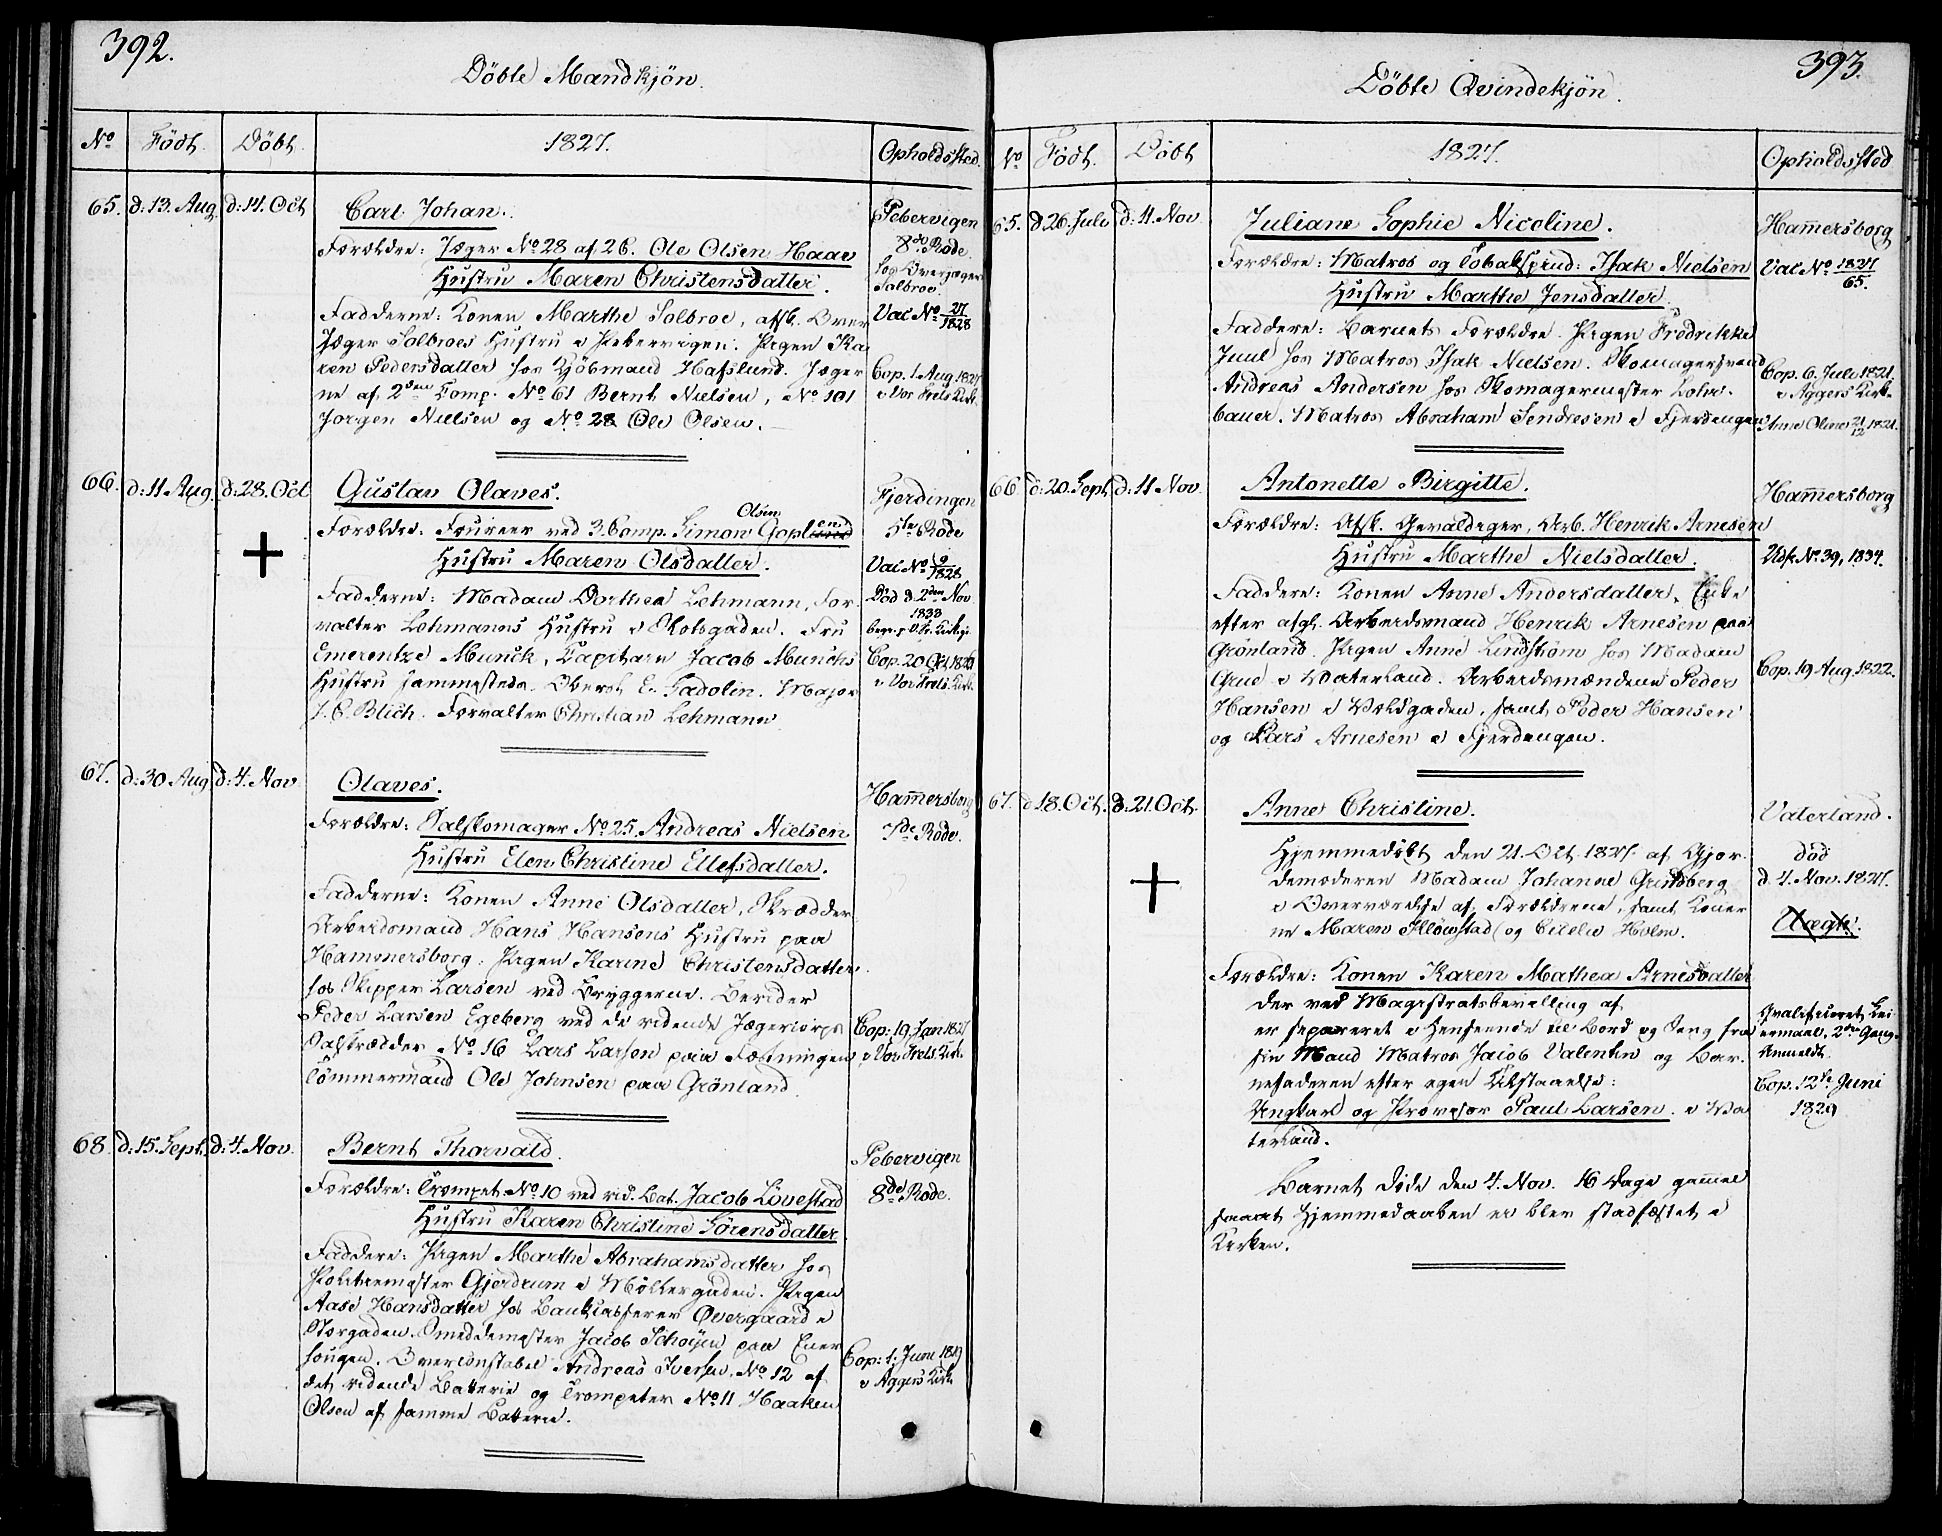 392.
Döbte Mandkjön.
No Födt. Döbt. 1827. Opholdssted.
65. d: 13. Aug. d: 14. Oct
Carl Johan.
Forældre: Jæger No 28 af 26. Ole Olsen Haae
Hustru Maren Christensdatter.
Fadderne: Konen Marthe Solbroe, afsk. Over
Jæger Solbroes Hustru i Pebervigen. Pigen Ka
ren Pedersdatter hos Kjöbmand Hafslund. Jæger
ne af 2den Comp. No 61 Bernt Nielsen, No 101
Jørgen Nielsen og No 28 Ole Olsen.
Pebervigen
8de Rode
hos Overjæger
Solbroe
Vac No 27/1828
Cop. 1. Aug. 1827
i Vor Frels. Kirke
66. d: 11 Aug. d: 28. Oct
Gustav Olaves.
Olsen
Forældre: Foureer ved 3. Comp. Simon Gopl
Hustru Maren Olsdatter.
Fadderne: Madam Dorthea Lehmann, For
valter Lehmanns Hustru i Skolegaden. Fru
Emerentze Munck, Capitain Jacob Munchs
Hustru sammesteds. Oberst E. Gadolin. Major
J. C. Blich. Forvalter Christian Lehmann
Fjerdingen
5te Rode
Vac No 9/1828
Död d. 2den Nov.
1833
Cop. 20 Oct.
i Vor Frels. Kirke
67. d: 30 Aug d: 4. Nov.
Olaves.
Forældre: Salskomager No 25. Andreas Nielsen
Hustru Elen Christine Ellefsdatter.
Fadderne: Konen Anne Olsdatter, Skrædder
Arbeidsmand Hans Hansens Hustru paa
Hammersborg. Pigen Karine Christensdatter
hos Skipper Larsen ved Bryggerne. Berider
Peder Larsen Egeberg ved de ridende Jægercorps
Salskrædder No 16 Lars Larsen paa Fæstningen
Tömmermand Ole Johnsen paa Grönland.
Ham̅ersborg
7de Rode.
Cop: 19 Jan 1827
i Vor Frels. Kirke
68. d: 15. Sept. d: 4. Nov.
Bernt Thorvald.
Forældre: Trompet. No 10 ved rid. Bat. Jacob Lövestad
Hustru Karen Christine Sörensdatter
Faddere: Pigen Marthe Abrahamsdatter hos
Politiemester Gjerdrum i Möllergaden. Pigen
Aase Hansdatter hos Bankcasserer Overgaard i
Storgaden. Smeddemester Jacob Schøyen paa Ener
hougen. Overconstabel Andreas Iversen, No 12 af
det ridende Batterie og Trompeter No 11 Haaken
Olsen af samme Batterie.
Pebervigen
8de Rode.
Cop: 1. Juni
i Aggers Kirke
393.
Döbte Qvindekjön.
No Födt. Döbt 1827. Opholdssted
65. d 26. Juli d: 11. Nov.
Juliane Sophie Nicoline.
Forældre: Matros og Tobakspind: Isak Nielsen
Hustru Marthe Jensdatter.
Faddere: Barnets Forældre. Pigen Fredrikke
Juul hos Matros Isak Nielsen. Skomagersvend
Andreas Andersen hos Skomagermester Lohr-
bauer. Matros Abraham Sendresen i Fjerdingen
Ham̅ersborg
Vac No 1827/65.
Cop. 6. Juli 1821.
i Aggers Kirke
Anne Oline 21/12 1821.
66 d: 20. Sept. d: 11 Nov.
Antonette Birgitte.
Forældre: Afsk. Gevaldiger, Arb. Henrik Arnesen
Hustru Marthe Nielsdatter.
Faddere: Konen Anne Andersdatter, Enke
efter afg. Arbeidsmand Henrik Arnesen paa
Grönland. Pigen Anne Lindström hos Madam
Grue i Vaterland. Arbeidsmændene Peder
Hansen i Voldgaden, samt Peder Hansen
og Lars Arnesen i Fjerdingen.
Ham̅ersborg
Udk No 39, 1834.
Cop. 19 Aug. 1822.
67. d 18. Oct. d: 21. Oct.
Anne Christine.
Hjemmedöbt den 21. Oct. 1827. af Gjor
demoderen Madam Johanne Grundberg
i Overværelse af Forældrene, samt Koner
ne Maren Alöwstad og Cicelie Holm.
Forældre: Konen Karen Mathea Arnesdatter
der ved Magistratsbevilling af
er separeret i Henseende til Bord og Seng fra
sin Mand Matros Jacob Valentin og Bar-
nefaderen efter egen Tilstaaelse:
Ungkarl og Provisor Paul Larsen. i Va
terland.
Barnet döde den 4. Nov. 16 Dage gammel
saaat Hjemmedaaben ei blev stadfæstet i
Kirken.
Vaterland.
död
d. 4. Nov. 1827.
Uægte.
Qvalificeret Lei
ermaal, 2den Gang
Anmeldt.
Cop. 12te Juni
1829